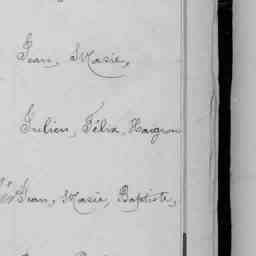 Jean, Marie,
Julien, Félix, Haignon
Jean, Marie, Baptiste,